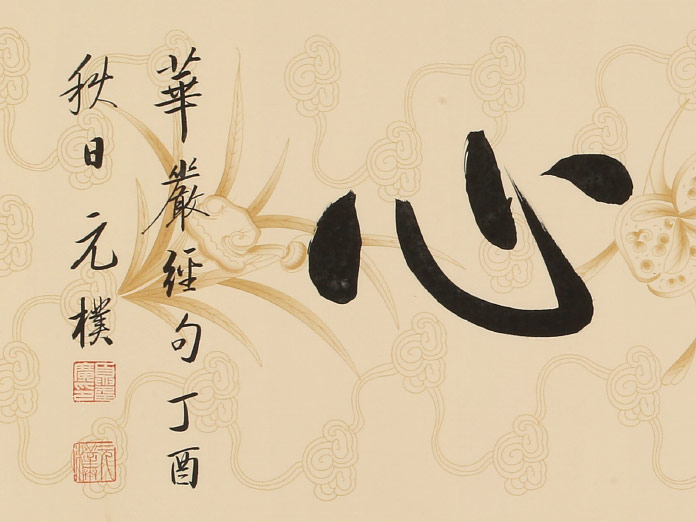 心
華嚴經句丁酉
秋日元樸